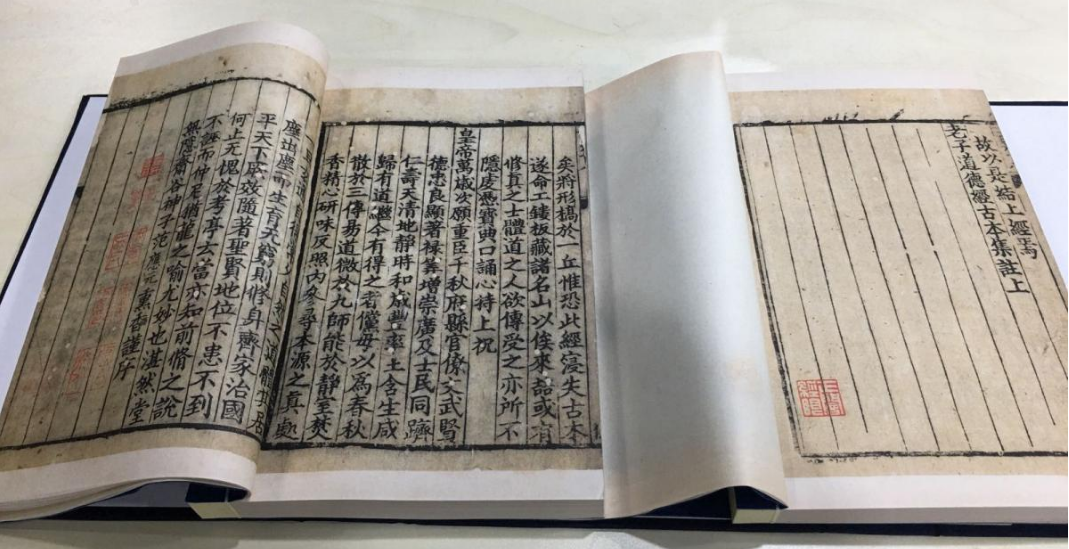 故以是結上經焉
老子道德經古本集註上
矣將形槁於一丘惟恐此經寖失古本
遂命工鋟板藏諸名山以俟來喆或有
修真之士體道之人欲傳受之亦所不
隱虔憑寶典口誦心持上祝
皇帝萬歲次願重臣千秋府縣官僚文武賢
德忠良顯著祿筭增崇廣及士民同躋
仁壽天清地靜時和歲豐率土含生咸
歸有道繼今有得之者儻毋以爲春秋
散於三傳易道微於九師能於靜室焚
香精心研味反照內參尋本源之真趣
塵出塵而生育无窮則修身齊家治國
平天下爲效隨著聖賢地位不患不到
何止无愧於考亭去當亦知前脩之說
不誣而仲尼猶龍之喻尤妙也湛然堂
無隱齋谷神子范應元熏香謹序